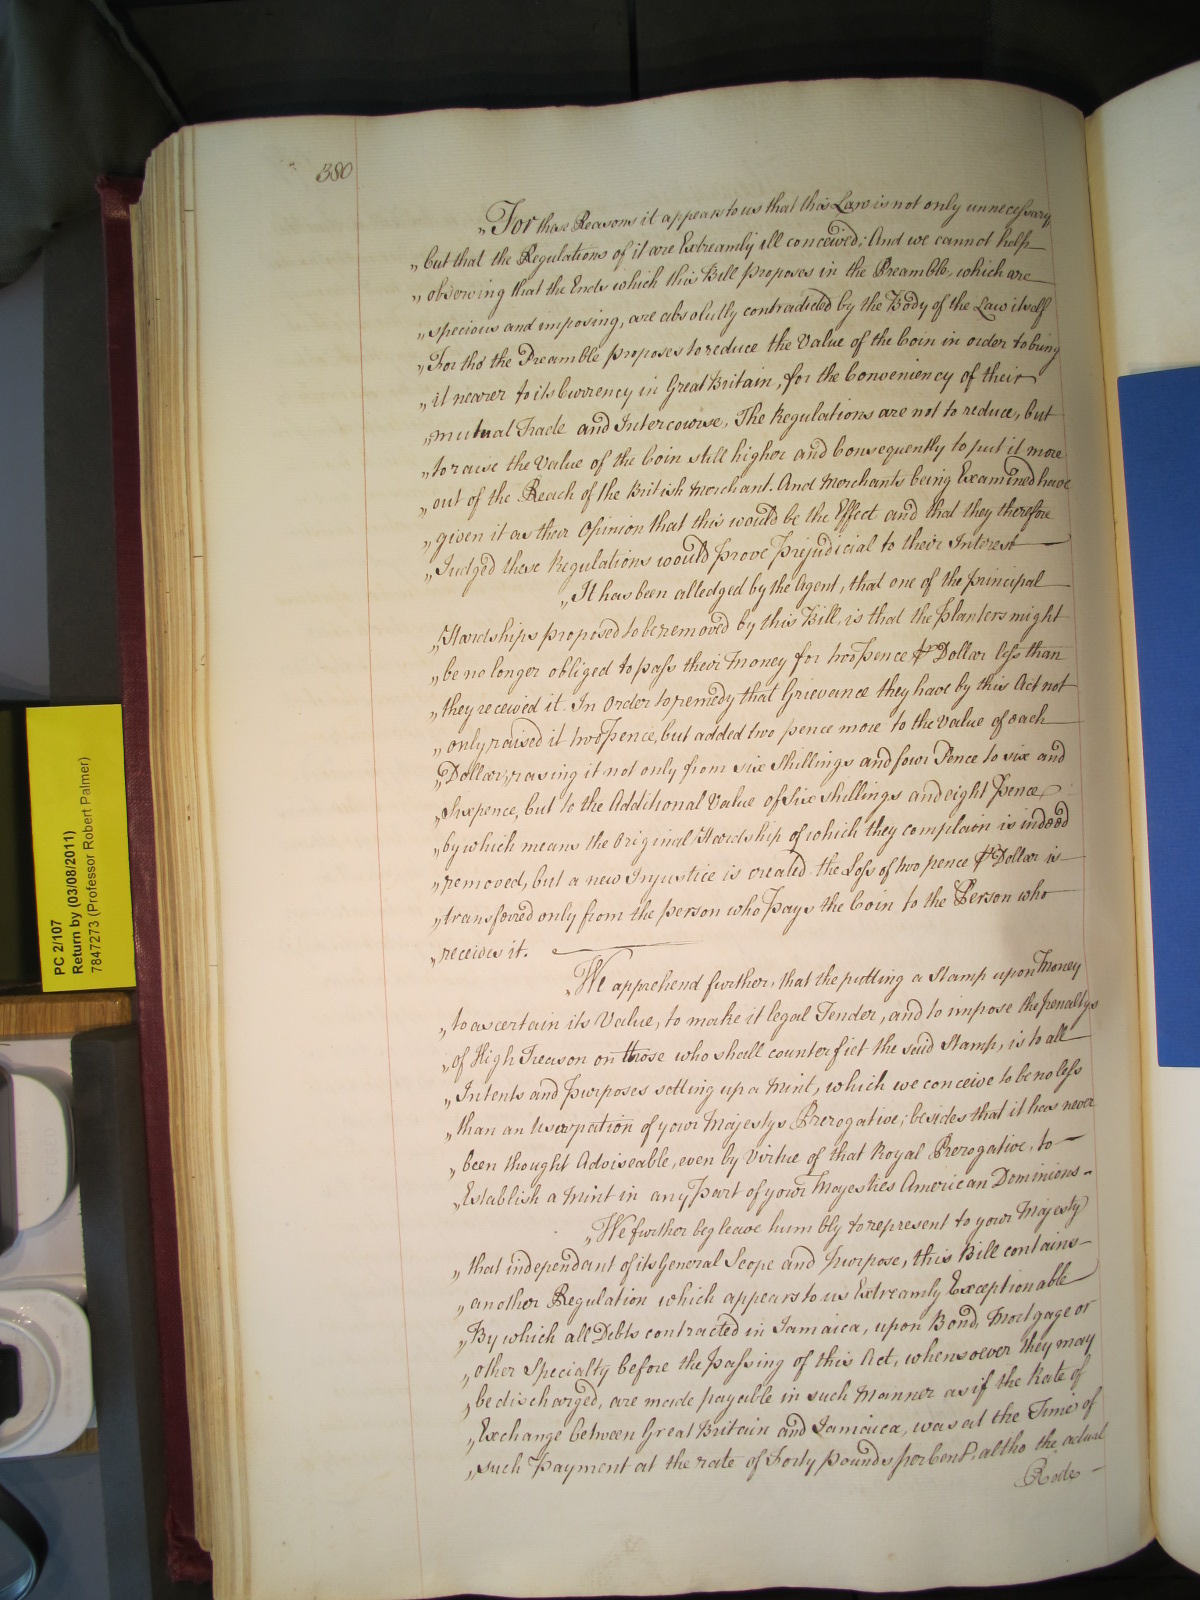 380
„For these Reasons it appears to us that this Law is not only unnecessary
„but that the Regulations of it are Extreamly ill conceived; And we cannot help
„observing that the Ends which this Bill proposes in the Preamble, which are
„specious and imposing, are absolutly contradicted by the Body of the Law itself
„For tho' the Preamble proposes to reduce the Value of the Coin in order to bring
„it nearer to its Currency in Great Britain, for the Conveniency of their
„mutual Trade and Intercourse, The Regulations are not to reduce, but
„to raise the Value of the Coin still higher and Consequently to put it more
„out of the Reach of the British Merchant. And Merchants being Examined have
„given it as their Opinion that this would be the Effect and that they therefore
„Judged these Regulations would prove Prejudicial to their Interest
„It has been alledged by the Agent, that one of the Principal
„Hardships proposed to be removed by this Bill, is that the Planters might
„be no longer obliged to pass their Money for two Pence ⅌ Dollar less than
„they received it. In order to remedy that Grievance they have by this Act not
„only raised it two Pence, but added two pence more to the Value of each
„Dollar, rasing it not only from six Shillings and four Pence to six and
„sixpence, but to the Additional Value of Six Shillings and eight Pence
„by which means the Original Hardship of which they complain is indeed
„removed, but a new Injustice is created the Loss of two pence ⅌ Dollar is
„transfered only from the person who Pays the Coin to the Person who
„receives it.
„We apprehend further, that the putting a Stamp upon Money
„to ascertain its Value, to make it legal Tender, and to impose the penaltys
„of High Treason on those who shall counterfiet the said Stamp, is to all
„Intents and Purposes setting up a Mint, which we conceive to be no less
„than an Usurpation of your Majestys Prerogative; besides that it has never
„been thought Adviseable, even by Virtue of that Royal Prerogative, to
„Establish a Mint in any Part of your Majesties American Dominions
„We further beg leave humbly to represent to your Majesty
„that independant of its General Scope and Purpose, this Bill contains
„another Regulation which appears to us Extreamly Exceptionable
„By which all Debts contracted in Jamaica, upon Bond, Mortgage or
„other Specialty before the passing of this Act, whensoever they may
„be discharged, are made payable in such Manner as if the Rate of
„Exchange between Great Britain and Jamaica, was at the Time of
„such Payment at the rate of Forty Pounds per Cent, altho the actual
Rate
PC 2/107
Return by (03/08/2011)
7847273 (Professor Robert Palmer)